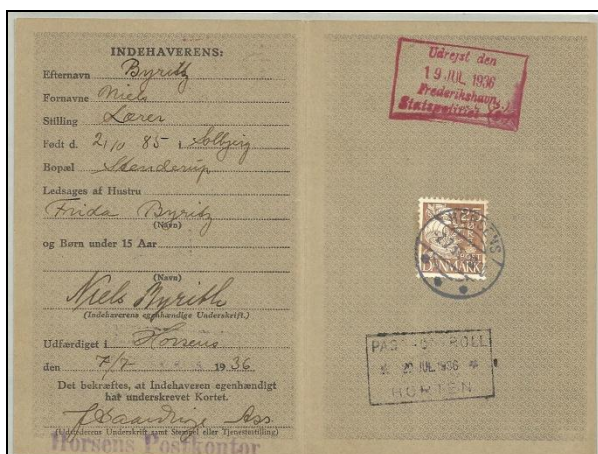 INDEHAVERENS:
Efternavn Byrith
Fornavne Niels
Stilling Lærer
Født d. 2/10 85 i Solbjerg
Bopæl Stenderup
Ledsages af Hustru
Frida Byrith
(Navn)
og Børn under 15 Aar
(Navn)
Niels Byrith
(Indehaverens egenhændige Underskrift.)
Udfærdiget i Horsens
den 7/7 1936
Det bekræftes, at Indehaveren egenhændigt
har underskrevet Kortet.
Ass.
(Udstederens Underskrift samt Stempel eller Tjenestestilling)
Horsens Postkontor
Udrejst den
19 JUL. 1936
Frederikshavn
Statspolitiet
HORSENS
25
DANMARK
PASSKONTROLL
20 JUL 1936
HORTEN